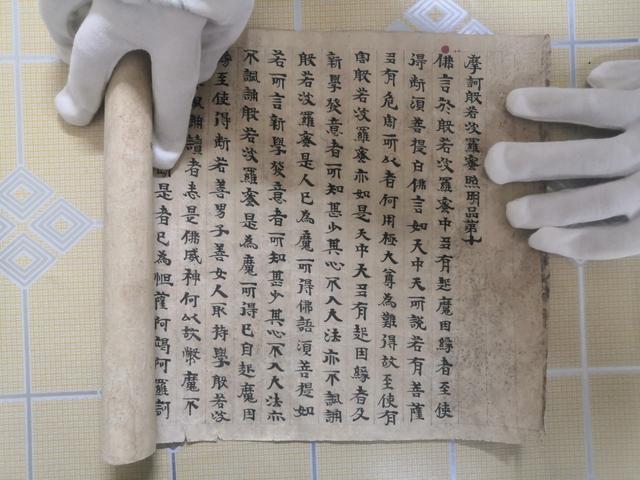 摩訶般若波羅蜜照明品第十
佛言於般若波羅蜜中多有起魔因緣者至使
得斷須菩提白佛言如天中天所說若有菩薩
多有危害所以者何用極大尊為難得故至使有
害般若波羅蜜亦如是天中天多有起因緣者又
新學發意者所知甚少其心不入大法亦不諷誦
般若波羅蜜是人已為魔所得佛語須菩提如
若所言新學發意者所知甚少其心不入大法亦
不諷誦般若波羅蜜是為魔所得已自起魔因
至使得斷若善男子善女人取持學般若波
諷誦讀者悉是佛威神何以故弊魔不
斷是者已為怛薩阿竭阿羅訶